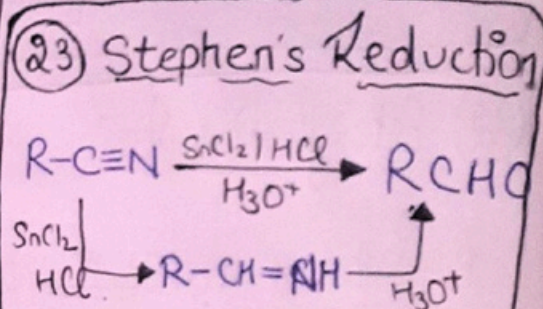 23 Stephen's Reduction
R-C≡N SnCl2/HCl RCHO
H3O+
SnCl2
HCl R-CH=NH H3O+